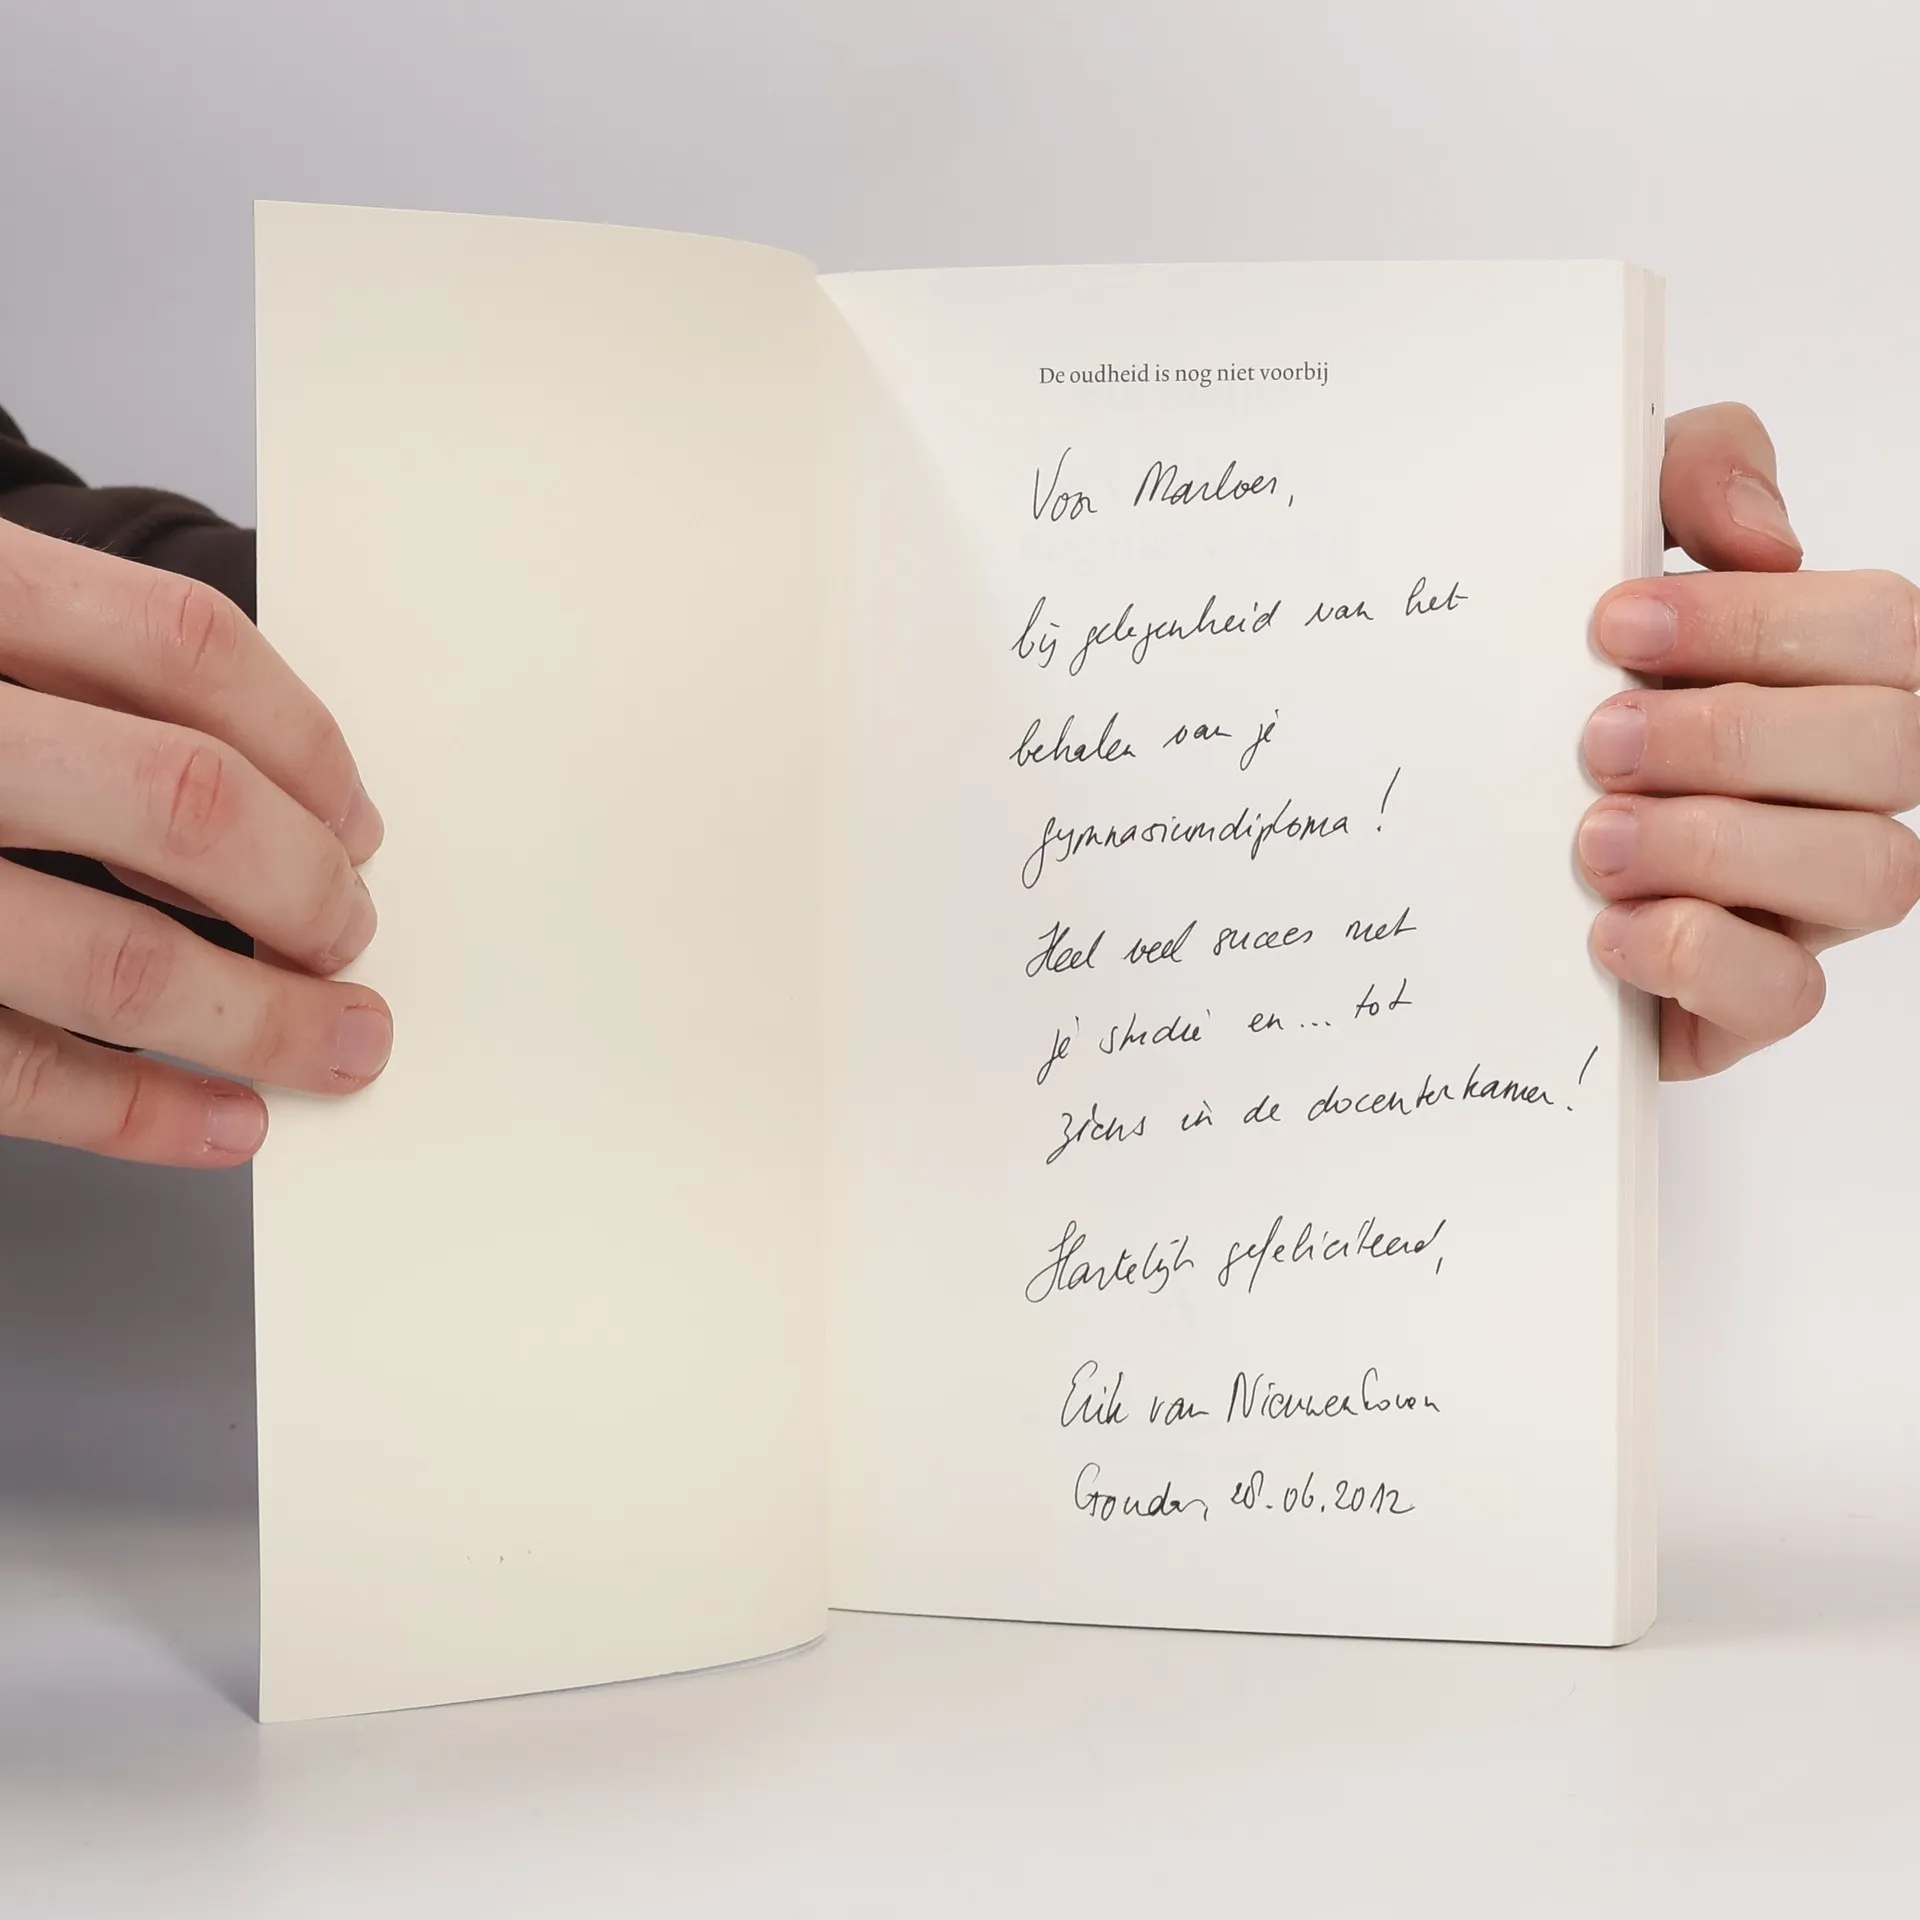 De oudheid is nog niet voorbij
Voor Marloes,
bij gelegenheid van het
behalen van je
gymnasiumdiploma!
Heel veel succes met
je studie en... tot
ziens in de docentenkamer!
Hartelijk gefeliciteerd,
Erik van Nieuwenhoven
Gouda, 28.06.2012